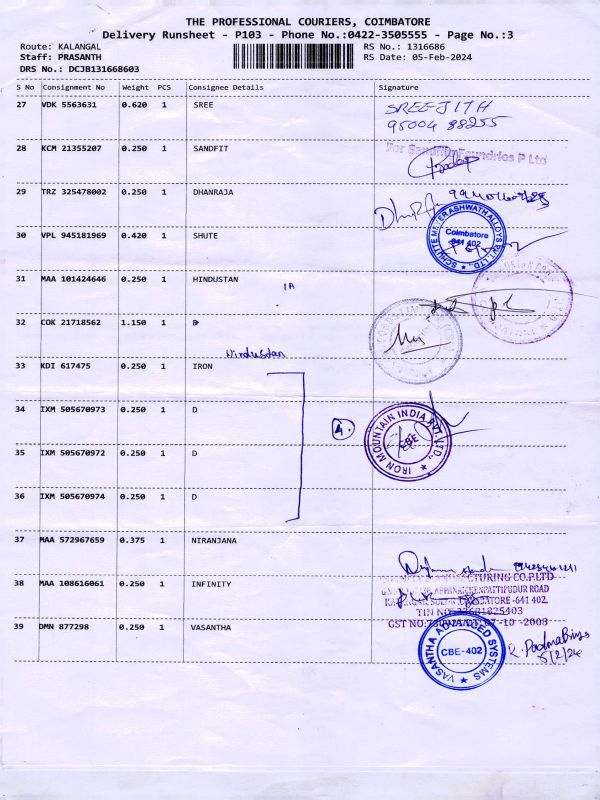 THE PROFESSIONAL COURIERS, COIMBATORE
Delivery Runsheet - P103 - Phone No.:0422-3505555 - Page No.:3
Route: KALANGAL
RS No.: 1316686
Staff: PRASANTH
RS Date: 05-Feb-2024
DRS No.: DCJB131668603
S No Consignment No Weight PCS Consignee Details Signature
27 VDK 5563631 0.620 1 SREE
SREEJITH
95004 88255
28 KCM 21355207 0.250 1 SANDFIT
For Sandfit Foundries P Ltd
29 TRZ 325478002 0.250 1 DHANRAJA
30 VPL 945181969 0.420 1 SHUTE
SCHUTE MEYER ASHWATH ALLOYS PVT. LTD.
Coimbatore
641 402
31 MAA 101424646 0.250 1 HINDUSTAN
1A
32 COK 21718562 1.150 1 D
Hindustan
33 KDI 617475 0.250 1 IRON
34 IXM 505670973 0.250 1 D
4.
IRON MOUNTAIN INDIA PVT. LTD.,
CBE
35 IXM 505670972 0.250 1 D
36 IXM 505670974 0.250 1 D
37 MAA 572967659 0.375 1 NIRANJANA
38 MAA 108616061 0.250 1 INFINITY
MANUFACTURING CO.P.LTD
APPANAICKENPATTIPUDUR ROAD
COIMBATORE -641 402.
39 DMN 877298 0.250 1 VASANTHA
VASANTHA ADVANCED SYSTEMS
CBE-402
R. PadmaPriya
5/2/24